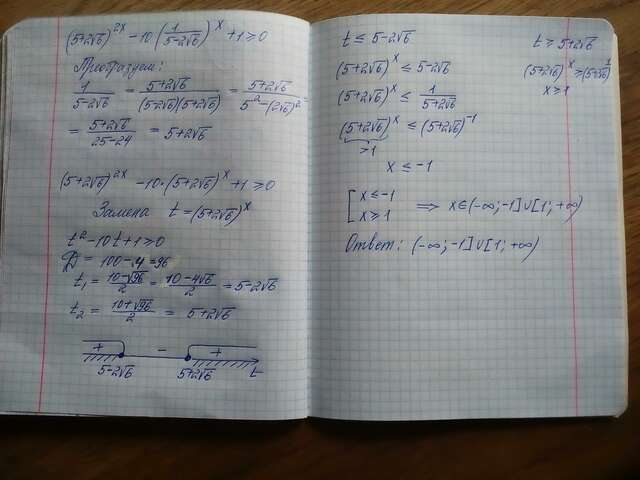 (5+2√6)^2x − 10(1/(5−2√6))^x + 1 ≥ 0
Преобразуем:
1/(5−2√6) = (5+2√6)/((5−2√6)(5+2√6)) = (5+2√6)/(5²−(2√6)²) =
= (5+2√6)/(25−24) = 5+2√6
(5+2√6)^2x − 10·(5+2√6)^x + 1 ≥ 0
Замена t = (5+2√6)^x
t² − 10t + 1 ≥ 0
D = 100 − 4 = 96
t₁ = (10−√96)/2 = (10−4√6)/2 = 5−2√6
t₂ = (10+√96)/2 = 5+2√6
+ − +
5−2√6 5+2√6 t
t ≤ 5−2√6
(5+2√6)^x ≤ 5−2√6
(5+2√6)^x ≤ 1/(5+2√6)
(5+2√6)^x ≤ (5+2√6)^−1
>1
x ≤ −1
t ≥ 5+2√6
(5+2√6)^x ≥ (5+2√6)^1
x ≥ 1
[ x ≤ −1
x ≥ 1 ⟹ x ∈ (−∞; −1] ∪ [1; +∞)
Ответ: (−∞; −1] ∪ [1; +∞)